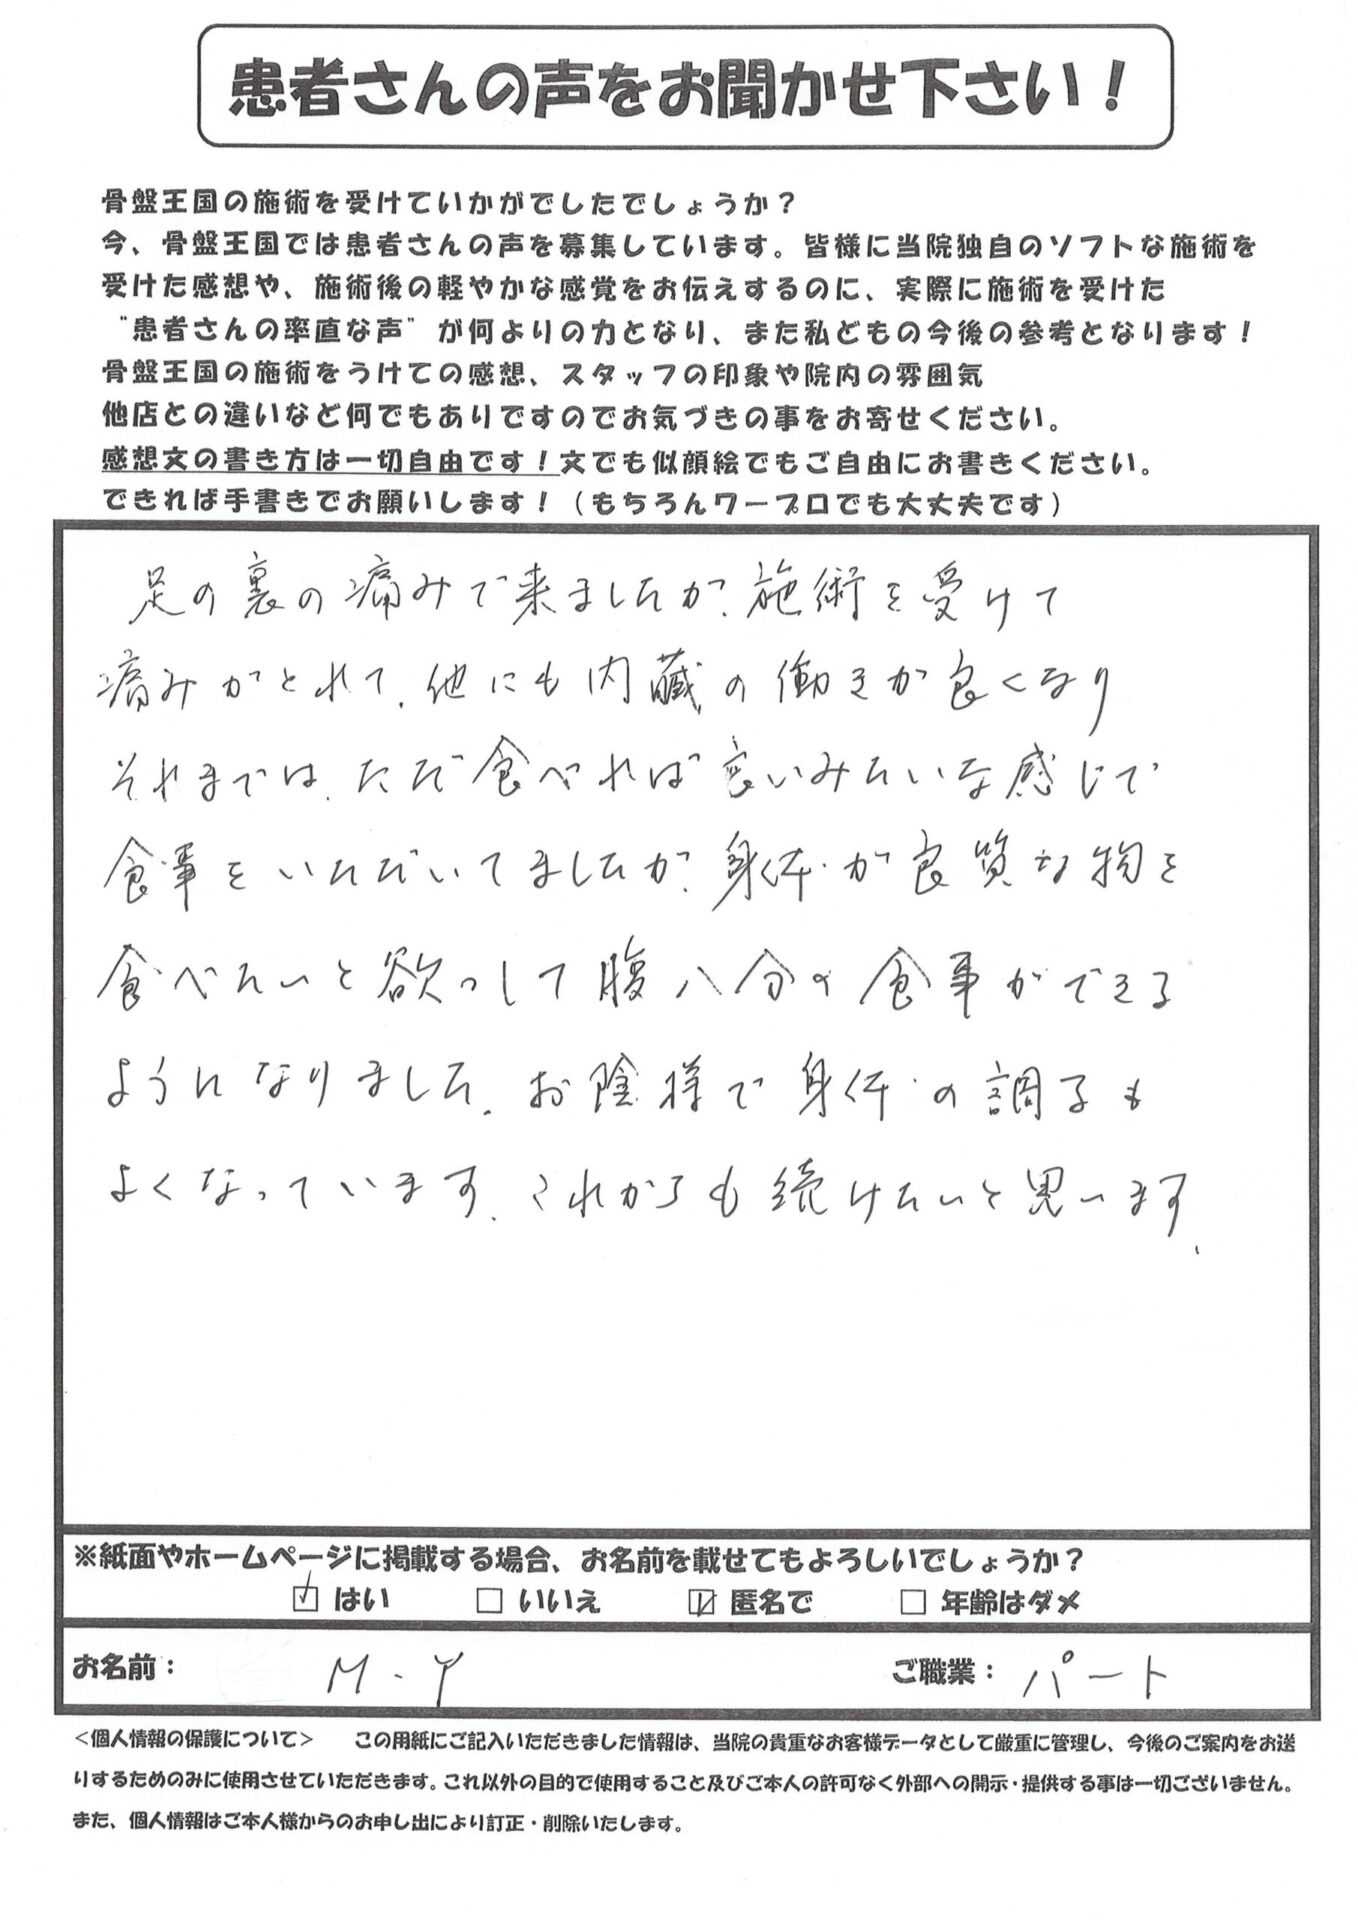 患者さんの声をお聞かせ下さい！
骨盤王国の施術を受けていかがでしたでしょうか？
今、骨盤王国では患者さんの声を募集しています。皆様に当院独自のソフトな施術を
受けた感想や、施術後の軽やかな感覚をお伝えするのに、実際に施術を受けた
“患者さんの率直な声”が何よりの力となり、また私どもの今後の参考となります！
骨盤王国の施術をうけての感想、スタッフの印象や院内の雰囲気
他店との違いなど何でもありですのでお気づきの事をお寄せください。
感想文の書き方は一切自由です！文でも似顔絵でもご自由にお書きください。
できれば手書きでお願いします！（もちろんワープロでも大丈夫です）
足の裏の痛みで来ましたが、施術を受けて
痛みがとれて、他にも内臓の働きが良くなり
それまでは、ただ食べれば良いみたいな感じで
食事をいただいてましたが、身体が良質な物を
食べたいと欲っして腹八分の食事ができる
ようになりました。お陰様で身体の調子も
よくなっています。これからも続けたいと思います。
※紙面やホームページに掲載する場合、お名前を載せてもよろしいでしょうか？
☑ はい □ いいえ ☑ 匿名で □ 年齢はダメ
お名前： M.Y ご職業： パート
＜個人情報の保護について＞ この用紙にご記入いただきました情報は、当院の貴重なお客様データとして厳重に管理し、今後のご案内をお送
りするためのみに使用させていただきます。これ以外の目的で使用すること及びご本人の許可なく外部への開示・提供する事は一切ございません。
また、個人情報はご本人様からのお申し出により訂正・削除いたします。